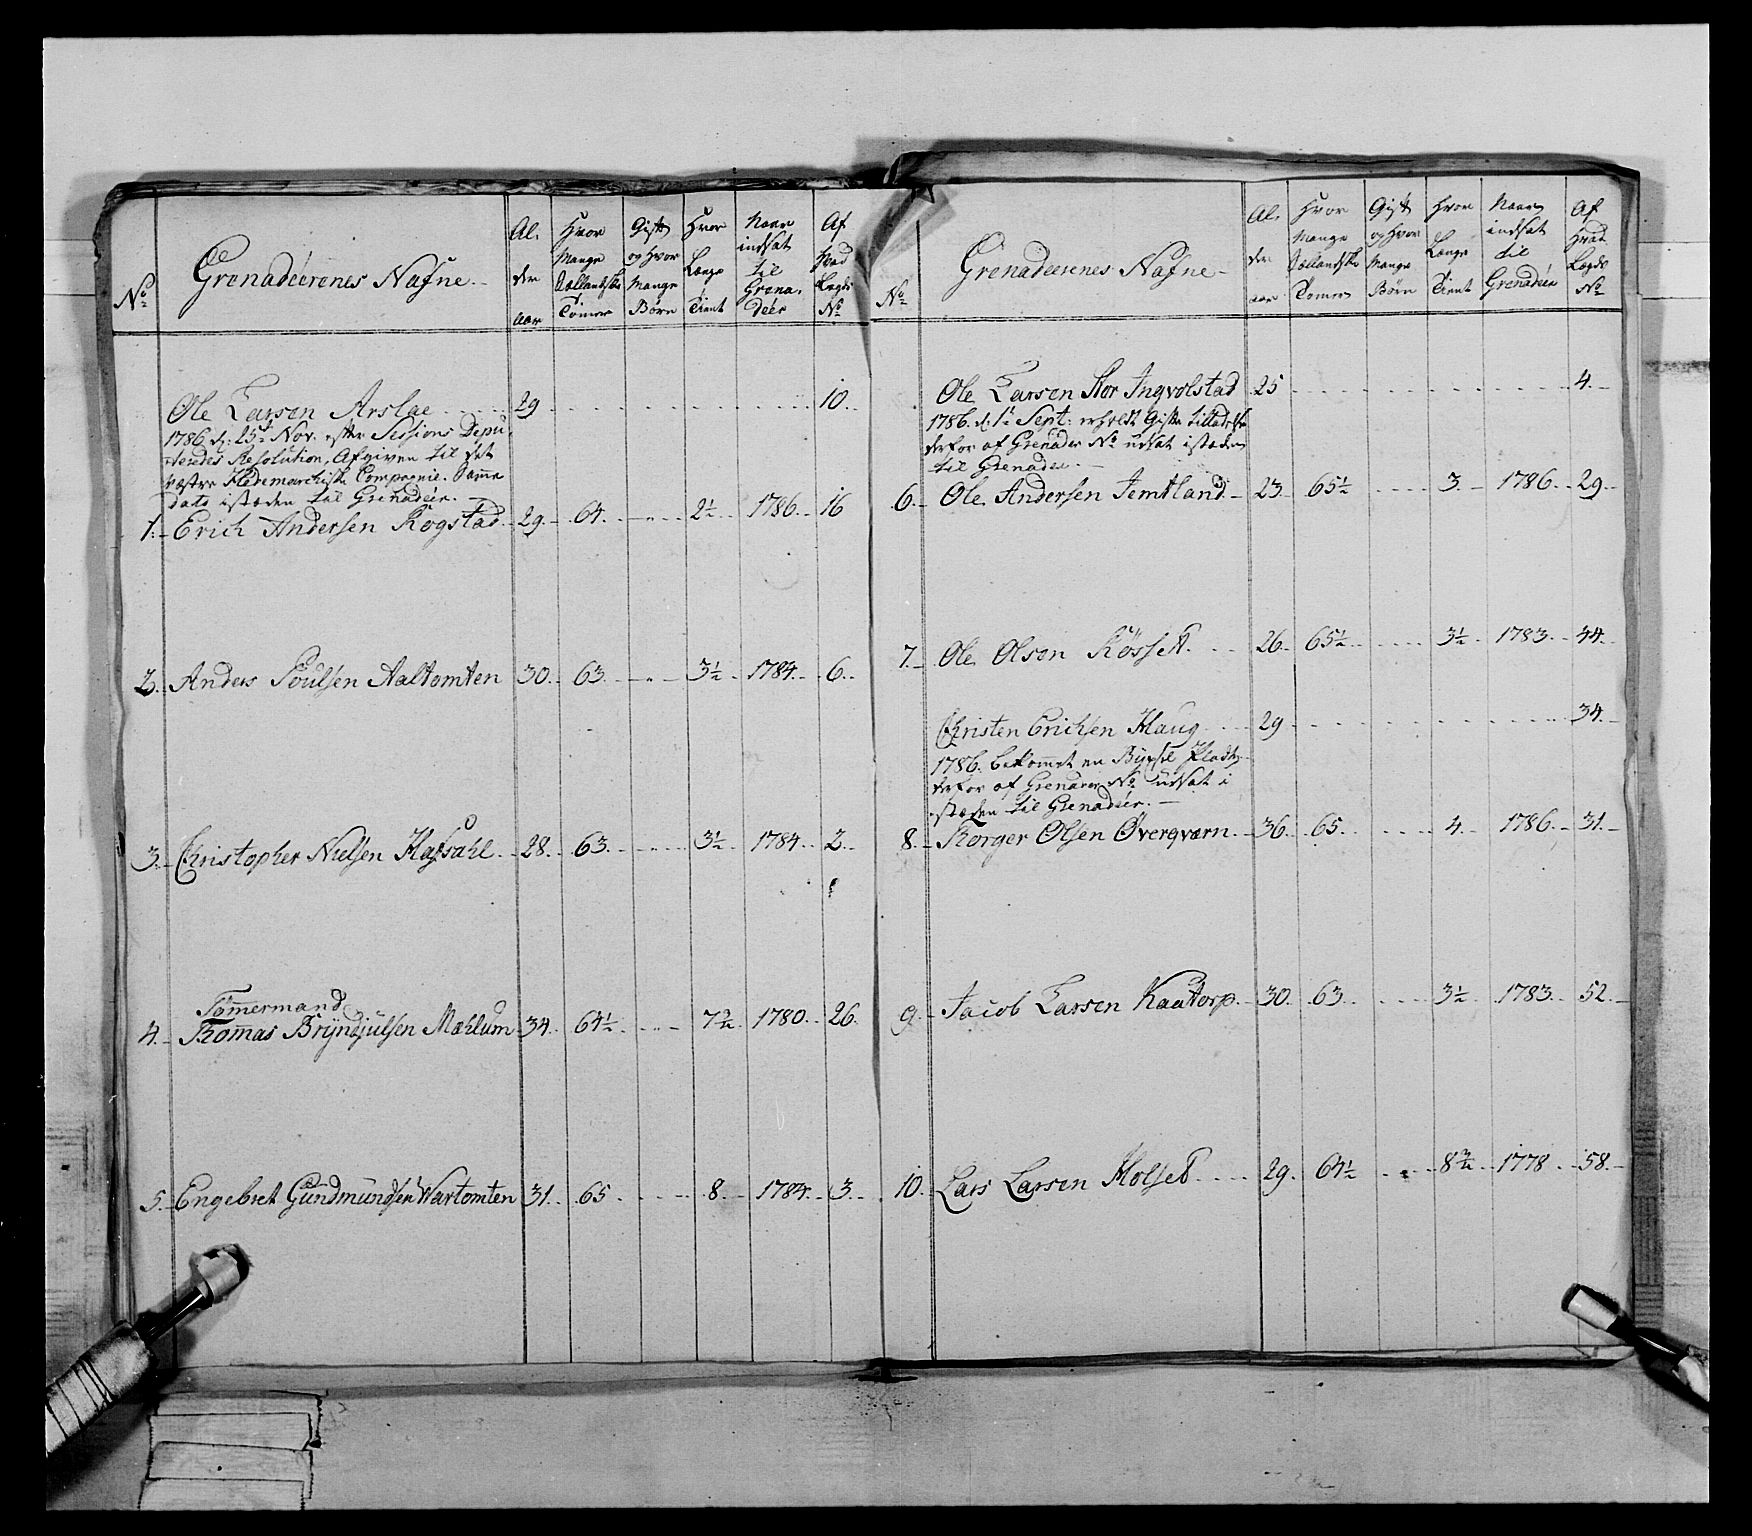 No
Grenadeerenes Nafne
Al.
der
aar
Hvor
Mange
Sællandske
Tomer
Gift
og hvor
Mange
Børn
Hvor
Længe
Tient
Naar
indsat
til
Grena,
deer
Af
Hvad
Lægds
No
Ole Larsen Arslae 29 10.
1786 d: 25de Nov. efter Sessions Depu,
teredes Resolution, Afgiven til det
vestre Hedemarchiske Compagnie. Samme
dato istæden til Grenadeer.
1. Erich Andersen Rogstad 29. 64. 2½ 1786. 16
2. Anders Poulsen Aaltomten 30. 63. 3½ 1784. 6.
3. Christopher Nielsen Hafsahl 28. 63. 3½ 1784. 2.
Tømmermand
4. Thomas Bryndjulsen Mæhlum 34. 64½ 7½ 1780. 26.
5. Engebret Gundmundsen Wartomten 31. 65 8. 1784. 3.
No
Grenadeerenes Nafne
Al.
der
aar
Hvor
Mange
Sællandske
Tomer
Gift
og hvor
Mange
Børn
Hvor
Længe
Tient
Naar
indsat
til
Grenadeer
Af
Hvad
Lægds
No
Ole Larsen Stor Ingvolstad 25 4.
1786. d: 1te Sept: erholdt Gifte tilladelse
derfor af Grenadeer No udsat istæden
til Grenadeer.
6. Ole Andersen Jemtland 23. 65½ 3. 1786. 29.
7. Ole Olsen Kösset 26. 65½ 3½ 1783. 44.
Christen Erichsen Haug 29 34.
1786. bekommet en Büxsel Plads,
derfor af Grenadeer No udsat i
stæden til Grenadeer.
8. Torger Olsen Overqværn 36. 65. 4. 1786. 31.
9. Jacob Larsen Kaatorp 30. 63. 3½ 1783. 52.
10. Lars Larsen Molset 29. 64½ 8½ 1778 58.